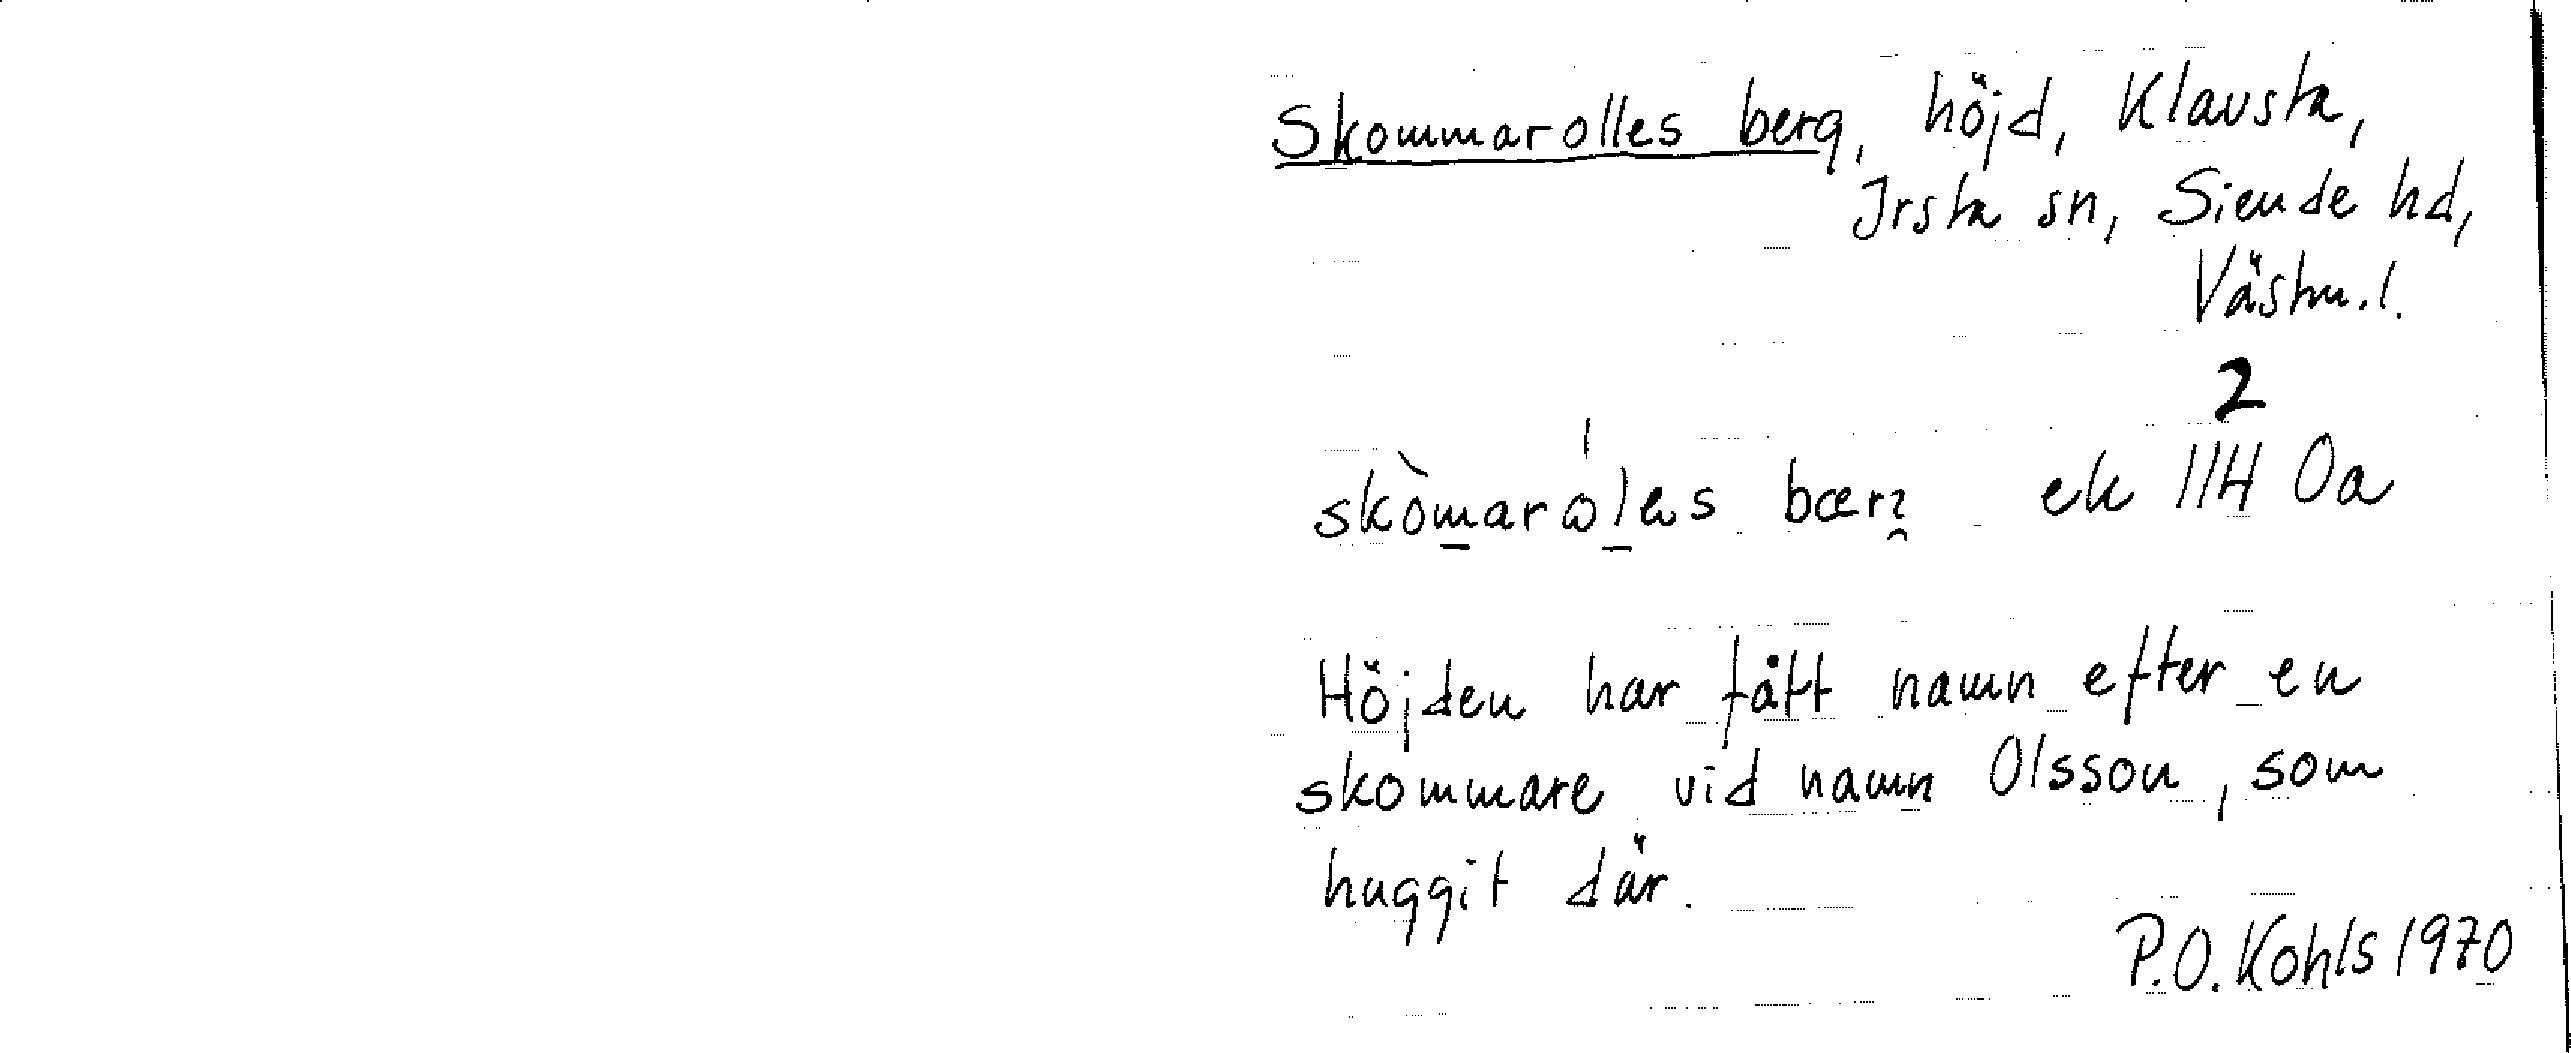 Skommarolles berg, höjd, Klavsta,
Irsta sn, Siende hd,
Västm.l.
2
skòmarόles bærʒ ek 114 0a
Höjden har fått namn efter en
skommare vid namn Olsson, som
huggit där.
P.O. Kohls 1970